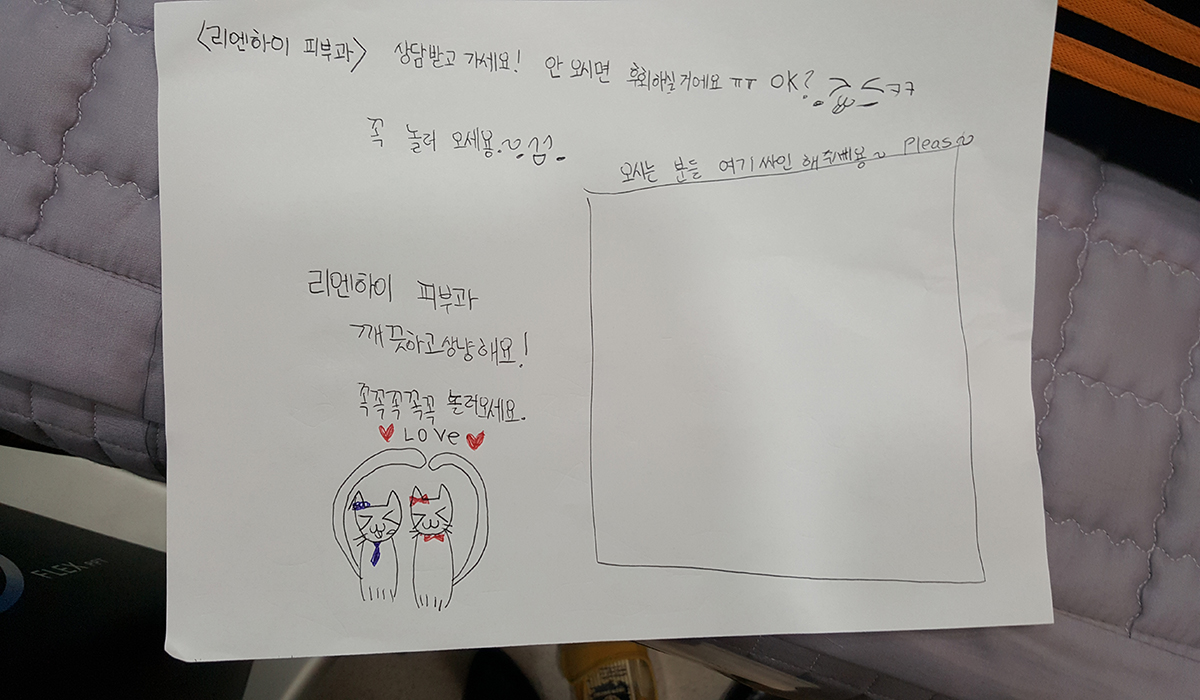 <리엔하이 피부과> 상담받고 가세요! 안 오시면 후회하실거에요 ㅠㅜ OK?
꼭 놀러 오세용~
오시는 분들 여기 싸인 해주세용~ Pleas~
리엔하이 피부과
깨끗하고 상냥해요!
꼭꼭꼭꼭꼭 놀러오세요.
♥ LOVE ♥
FLEX